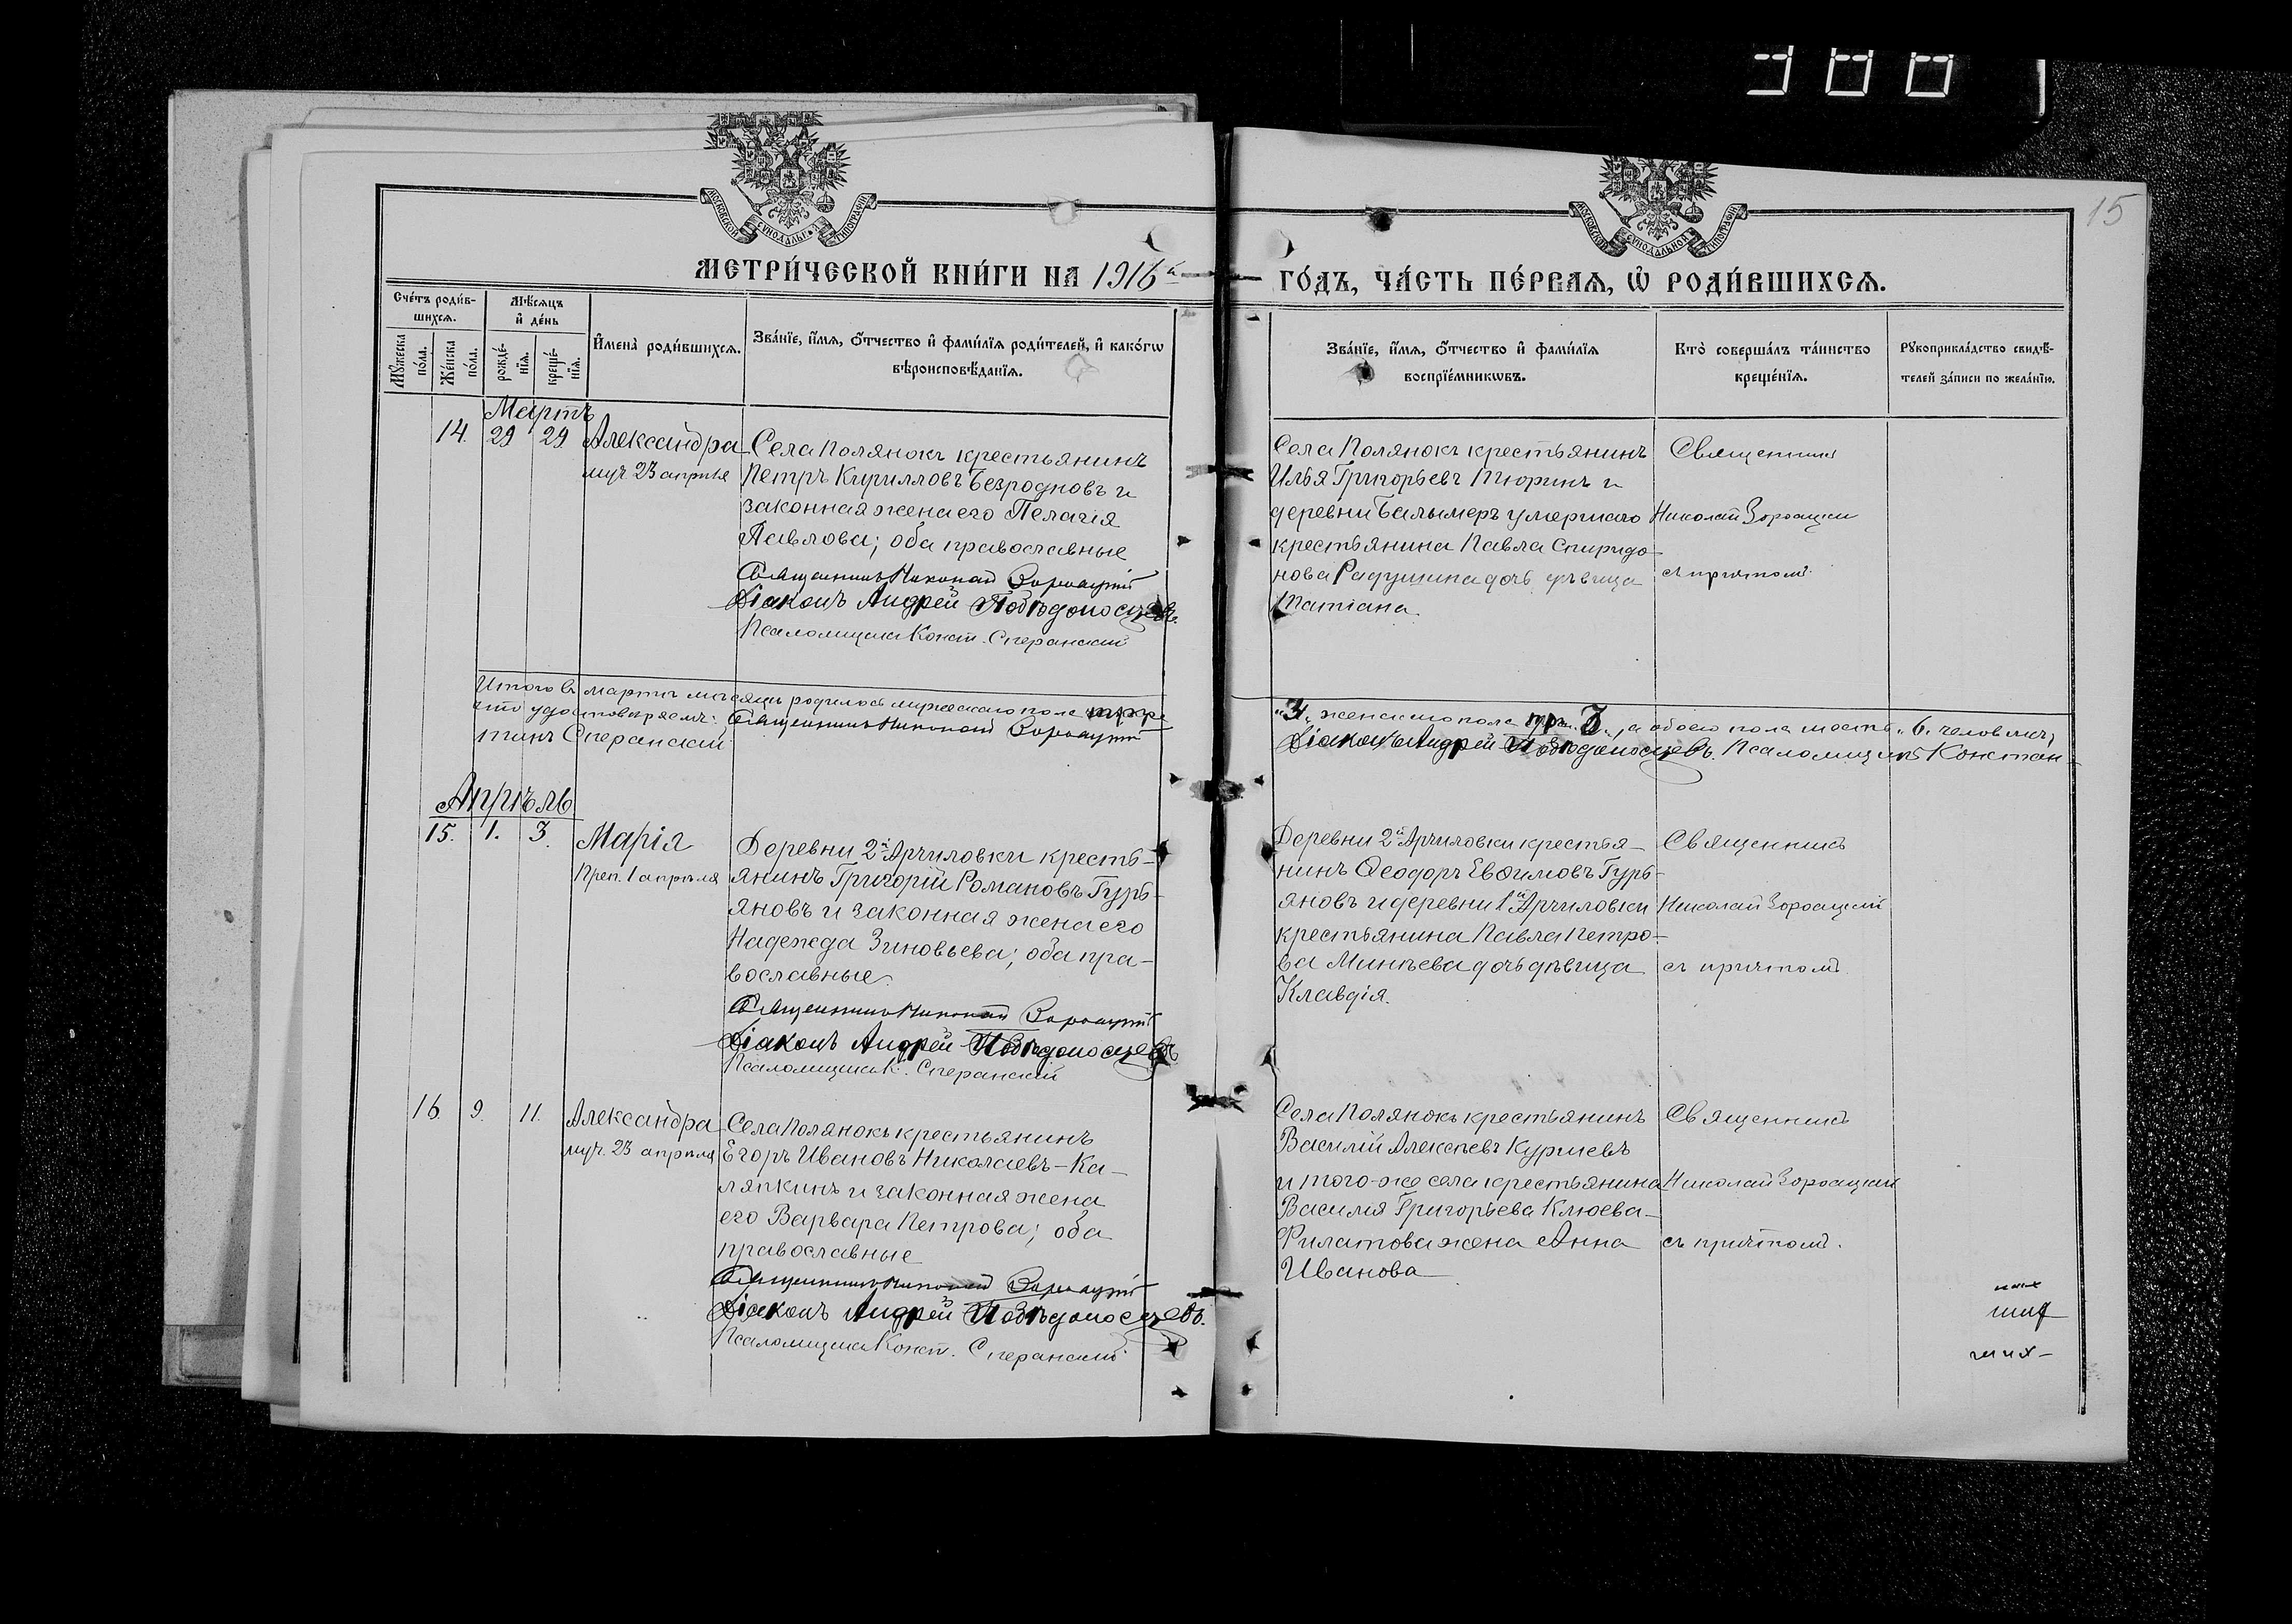 15
МОСКОВСКОЙ СУНОДАЛЬНОЙ ТИПОГРАФІИ
МОСКОВСКОЙ СУНОДАЛЬНОЙ ТИПОГРАФІИ
МЕТРИ́ЧЕСКОЙ КНИ́ГИ НА 1916 й ГО́ДЪ, ЧА́СТЬ ПЕ́РВАЯ, Ѽ РОДИ́ВШИХСЯ.
Сче́тъ роди́в-
шихся.
Мꙋ́жеска
по́ла.
Же́нска
по́ла.
Мѣ́сяцъ
и҆ де́нь
рожде́-
нїя.
креще́-
нїя.
И҆мена̀ роди́вшихся.
Зва́нїе, и҆́мя, ѻ҆́тчество и҆ фами́лїя роди́телей, и҆ како́гѡ
вѣроисповѣ́данїя.
Зва́нїе, и҆́мя, ѻ҆́тчество и҆ фами́лїя
воспрїе́мникѡвъ.
Кто̀ соверша́лъ та́инство
креще́нїя.
Рꙋкоприкла́дство свидѣ́-
телей за́писи по жела́нїю.
Мартъ
14. 29 29 Александра
муч. 23 апрѣля
Села Полянокъ крестьянинъ
Петръ Кирилловъ Безродновъ и
законная жена его Пелагія
Павлова; оба православные
Священникъ Николай
Діаконъ Андрей Побѣдоносцевъ.
Псаломщикъ Конст. Сперанскій
Села Полянокъ крестьянинъ
Илья Григорьевъ Тюринъ и
деревни Балымеръ умершаго
крестьянина Павла Спиридо-
нова Радушина дочь дѣвица
Татіана.
Священникъ
Николай
съ причтомъ.
Итого въ мартѣ мѣсяцѣ родилось мужескаго пола три
"3", женскаго пола три 3, а обоего пола шесть "6" человѣкъ,
что удостовѣряемъ: Священникъ Николай
Діаконъ Андрей Побѣдоносцевъ. Псаломщикъ Констан-
тинъ Сперанскій
Апрѣль
15. 1. 3. Марія
Преп. 1 апрѣля
Деревни 2й Арчиловки кресть-
янинъ Григорій Романовъ Гурь-
яновъ и законная жена его
Надежда Зиновьева; оба пра-
вославные.
Священникъ Николай
Діаконъ Андрей Побѣдоносцевъ
Псаломщикъ К. Сперанскій
Деревни 2й Арчиловки крестья-
нинъ Ѳеодоръ Евѳимовъ Гурь-
яновъ и деревни 1й Арчиловки
крестьянина Павла Петро-
ва Минѣева дочь дѣвица
Клавдія.
Священникъ
Николай
съ причтомъ.
16. 9. 11. Александра
муч. 23 апрѣля
Села Полянокъ крестьянинъ
Егоръ Ивановъ Николаевъ-Ка-
ляпкинъ и законная жена
его Варвара Петрова; оба
православные
Священникъ Николай
Діаконъ Андрей Побѣдоносцевъ.
Псаломщикъ Конст. Сперанскій
Села Полянокъ крестьянинъ
Василій Алексѣевъ Куршевъ
и того-же села крестьянина
Василія Григорьева Клюева-
Филатова жена Анна
Иванова
Священникъ
Николай
съ причтомъ.